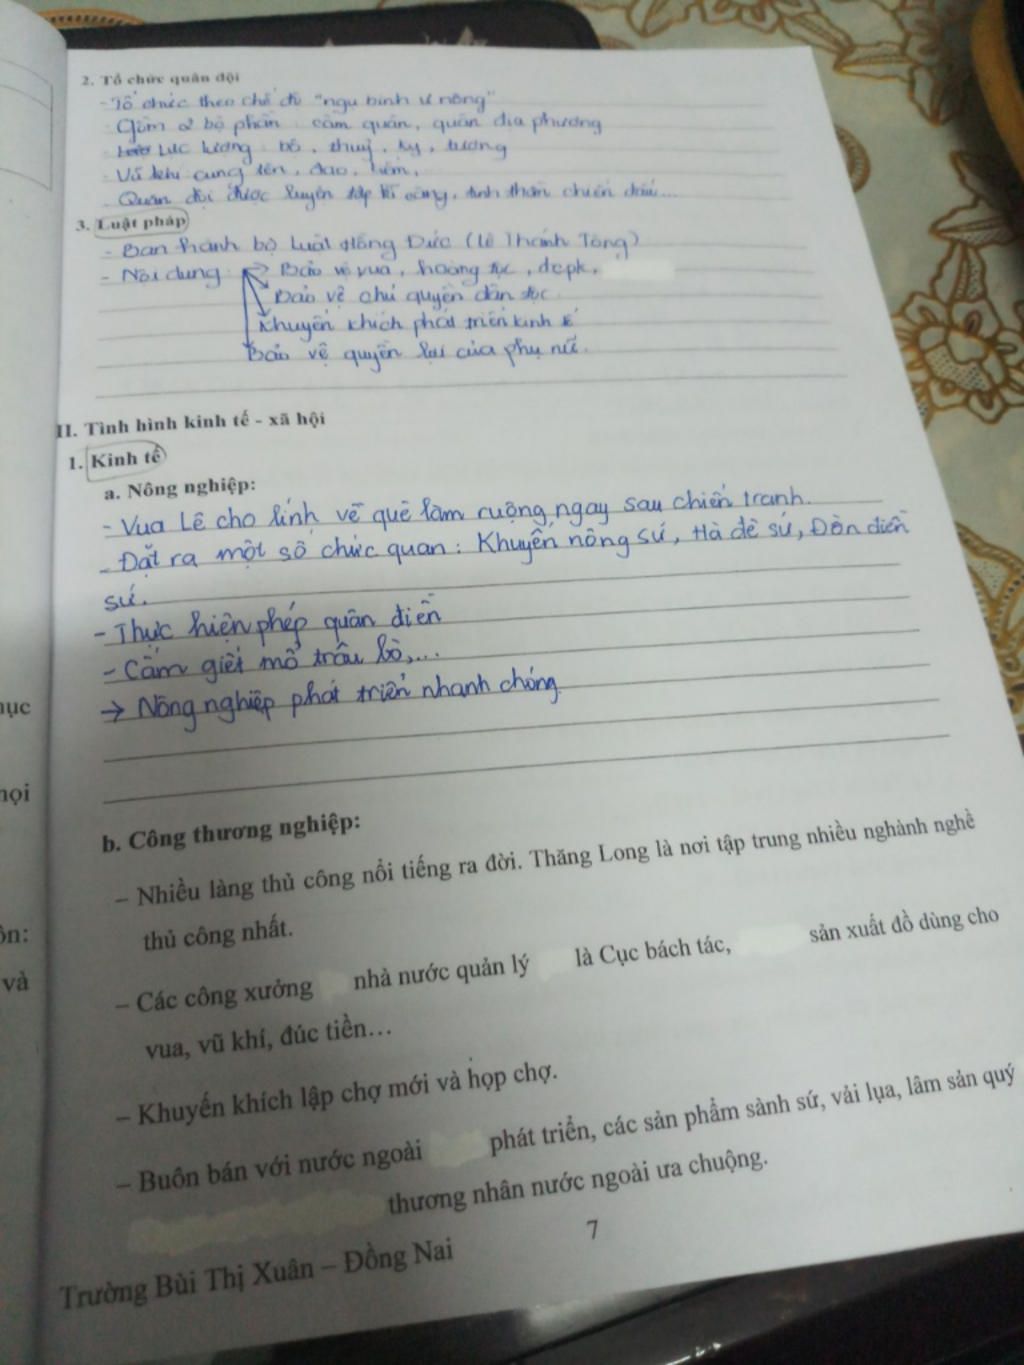 2. Tổ chức quân đội
- Tổ chức theo chế độ "ngụ binh ư nông"
- Gồm 2 bộ phận: cấm quân, quân địa phương
- Lực lượng: bộ, thuỷ, kỵ, tượng
- Vũ khí cung tên, đao, kiếm,
- Quân đội được luyện tập kĩ càng, tinh thần chiến đấu...
3. Luật pháp
- Ban hành bộ luật Hồng Đức (Lê Thánh Tông)
- Nội dung: Bảo vệ vua, hoàng tộc, đcpk,
Bảo vệ chủ quyền dân tộc
Khuyến khích phát triển kinh tế
Bảo vệ quyền lợi của phụ nữ.
II. Tình hình kinh tế - xã hội
1. Kinh tế
a. Nông nghiệp:
- Vua Lê cho lính về quê làm ruộng ngay sau chiến tranh.
- Đặt ra một số chức quan: Khuyến nông sứ, Hà đê sứ, Đồn điền
sứ.
- Thực hiện phép quân điền
- Cấm giết mổ trâu bò,...
→ Nông nghiệp phát triển nhanh chóng.
b. Công thương nghiệp:
– Nhiều làng thủ công nổi tiếng ra đời. Thăng Long là nơi tập trung nhiều nghành nghề
thủ công nhất.
– Các công xưởng nhà nước quản lý là Cục bách tác, sản xuất đồ dùng cho
vua, vũ khí, đúc tiền…
– Khuyến khích lập chợ mới và họp chợ.
– Buôn bán với nước ngoài phát triển, các sản phẩm sành sứ, vải lụa, lâm sản quý
thương nhân nước ngoài ưa chuộng.
7
Trường Bùi Thị Xuân – Đồng Nai
và